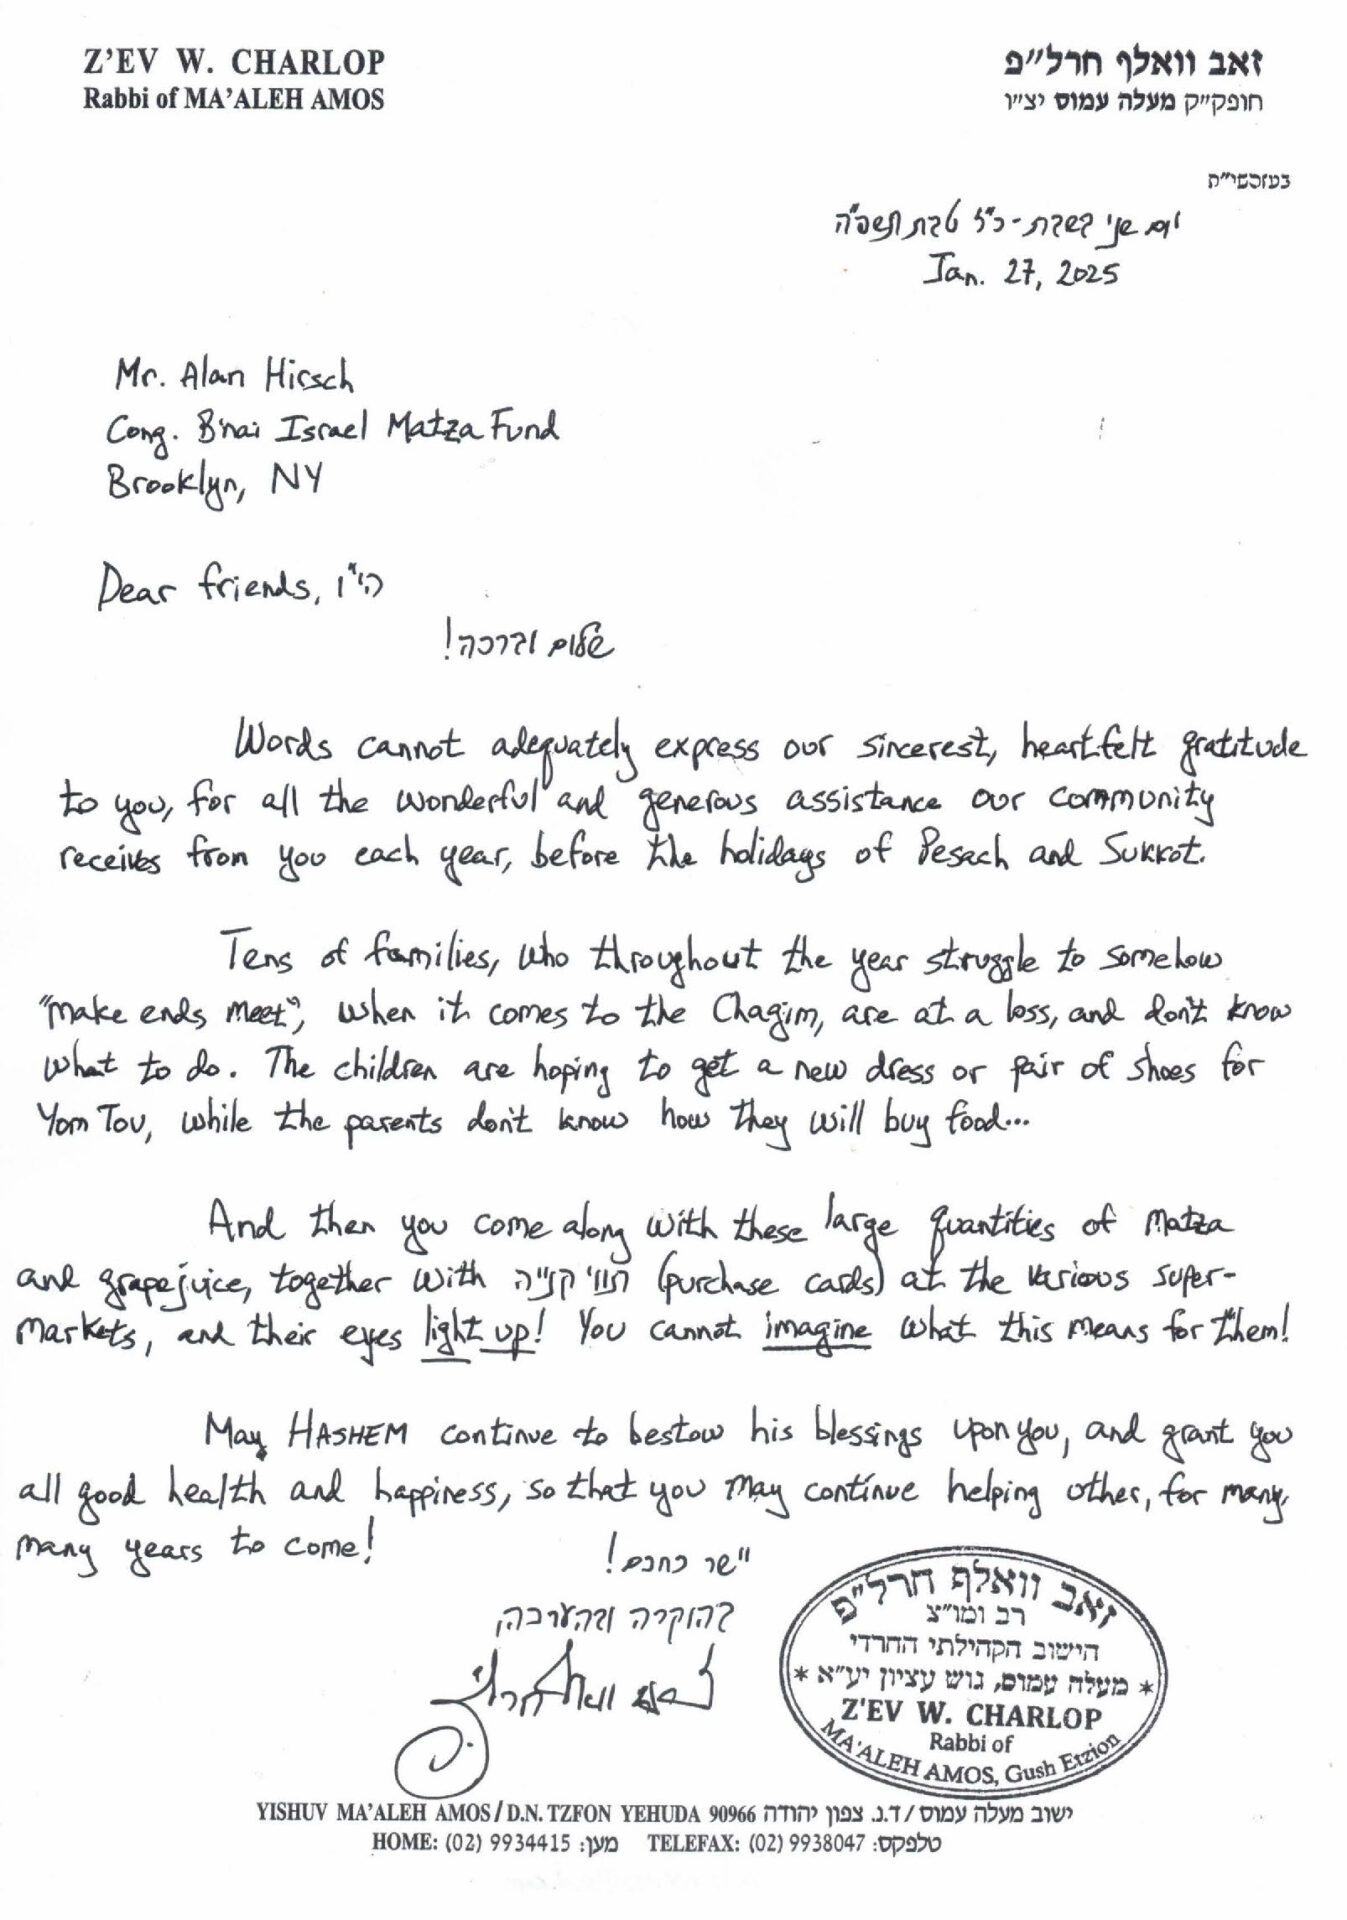 Z'EV W. CHARLOP
Rabbi of MA'ALEH AMOS
זאב וואלף חרל״פ
חופק״ק מעלה עמוס יצ״ו
יום שני בשבת - כ"ז טבת תשפ"ה
Jan. 27, 2025
Mr. Alan Hirsch
Cong. B'nai Israel Matza Fund
Brooklyn, NY
Dear friends, הי"ו
שלום וברכה!
Words cannot adequately express our sincerest, heartfelt gratitude
to you, for all the wonderful and generous assistance our community
receives from you each year, before the holidays of Pesach and Sukkot.
Tens of families, who throughout the year struggle to somehow
"make ends meet", when it comes to the Chagim, are at a loss, and don't know
what to do. The children are hoping to get a new dress or pair of shoes for
Yom Tov, while the parents don't know how they will buy food...
And then you come along with these large quantities of Matza
and grapejuice, together with תווי קנייה (purchase cards) at the various super-
markets, and their eyes light up! You cannot imagine what this means for them!
May HASHEM continue to bestow his blessings upon you, and grant you
all good health and happiness, so that you may continue helping other, for many,
many years to come!
יישר כחכם!
בהוקרה ובהערכה,
זאב וואלף חרל״פ
רב ומו״צ
הישוב הקהילתי החרדי
* מעלה עמוס, גוש עציון יע״א *
Z'EV W. CHARLOP
Rabbi of
MA'ALEH AMOS, Gush Etzion
YISHUV MA'ALEH AMOS / D.N. TZFON YEHUDA 90966 ישוב מעלה עמוס / ד.נ. צפון יהודה
HOME: (02) 9934415 :מען TELEFAX: (02) 9938047 :טלפקס